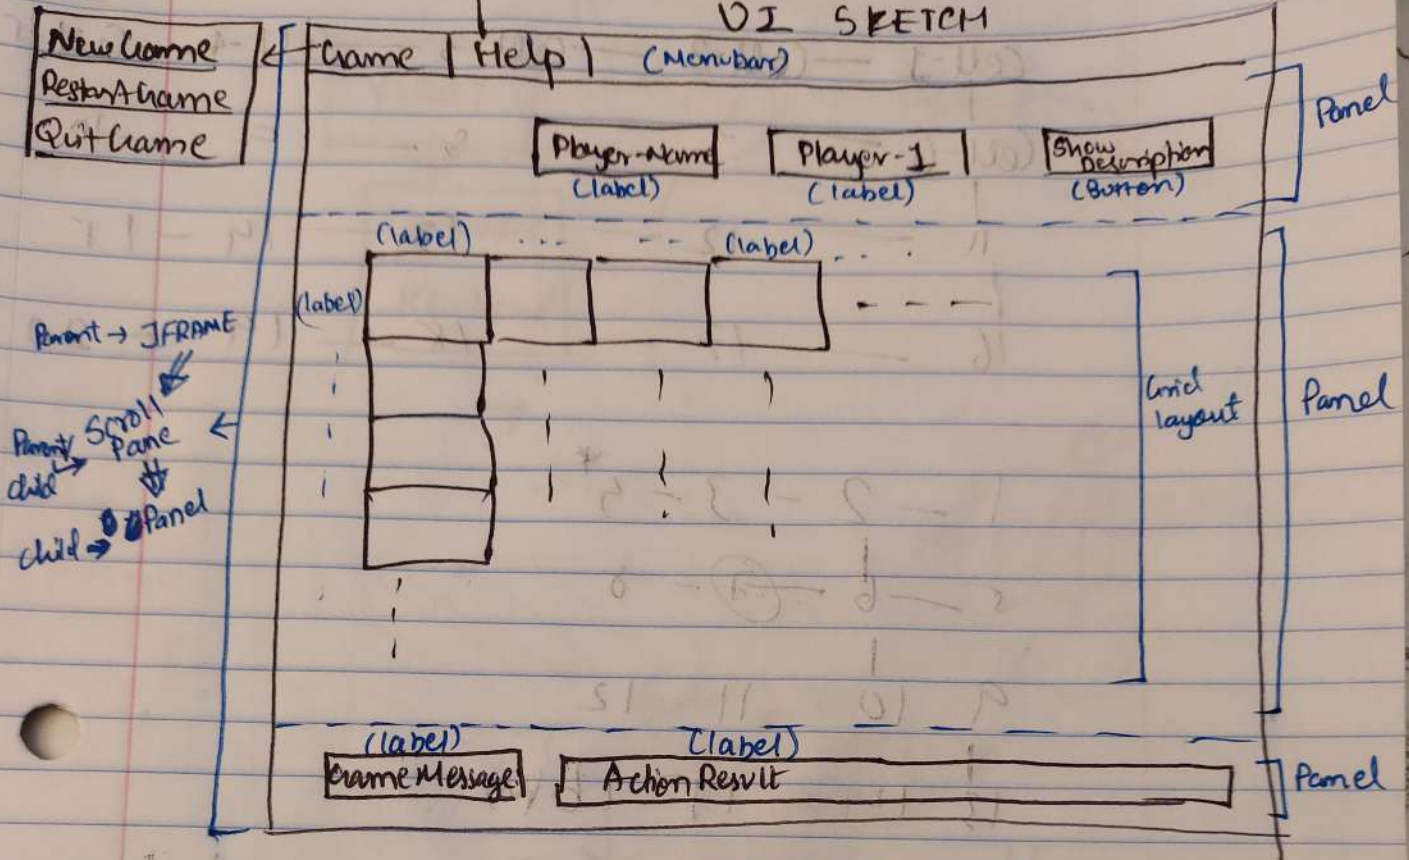 UI SKETCH
New Game
Restart Game
Quit Game
Game | Help | (Menubar)
Panel
Player-Name
(label)
Player-1
(label)
Show Description
(Button)
(label) ... -- (label) ...
(label)
Parent → JFRAME
Scroll Pane
Parent/child
Panel
child
Grid layout
Panel
(label)
Game Message
(label)
Action Result
Panel